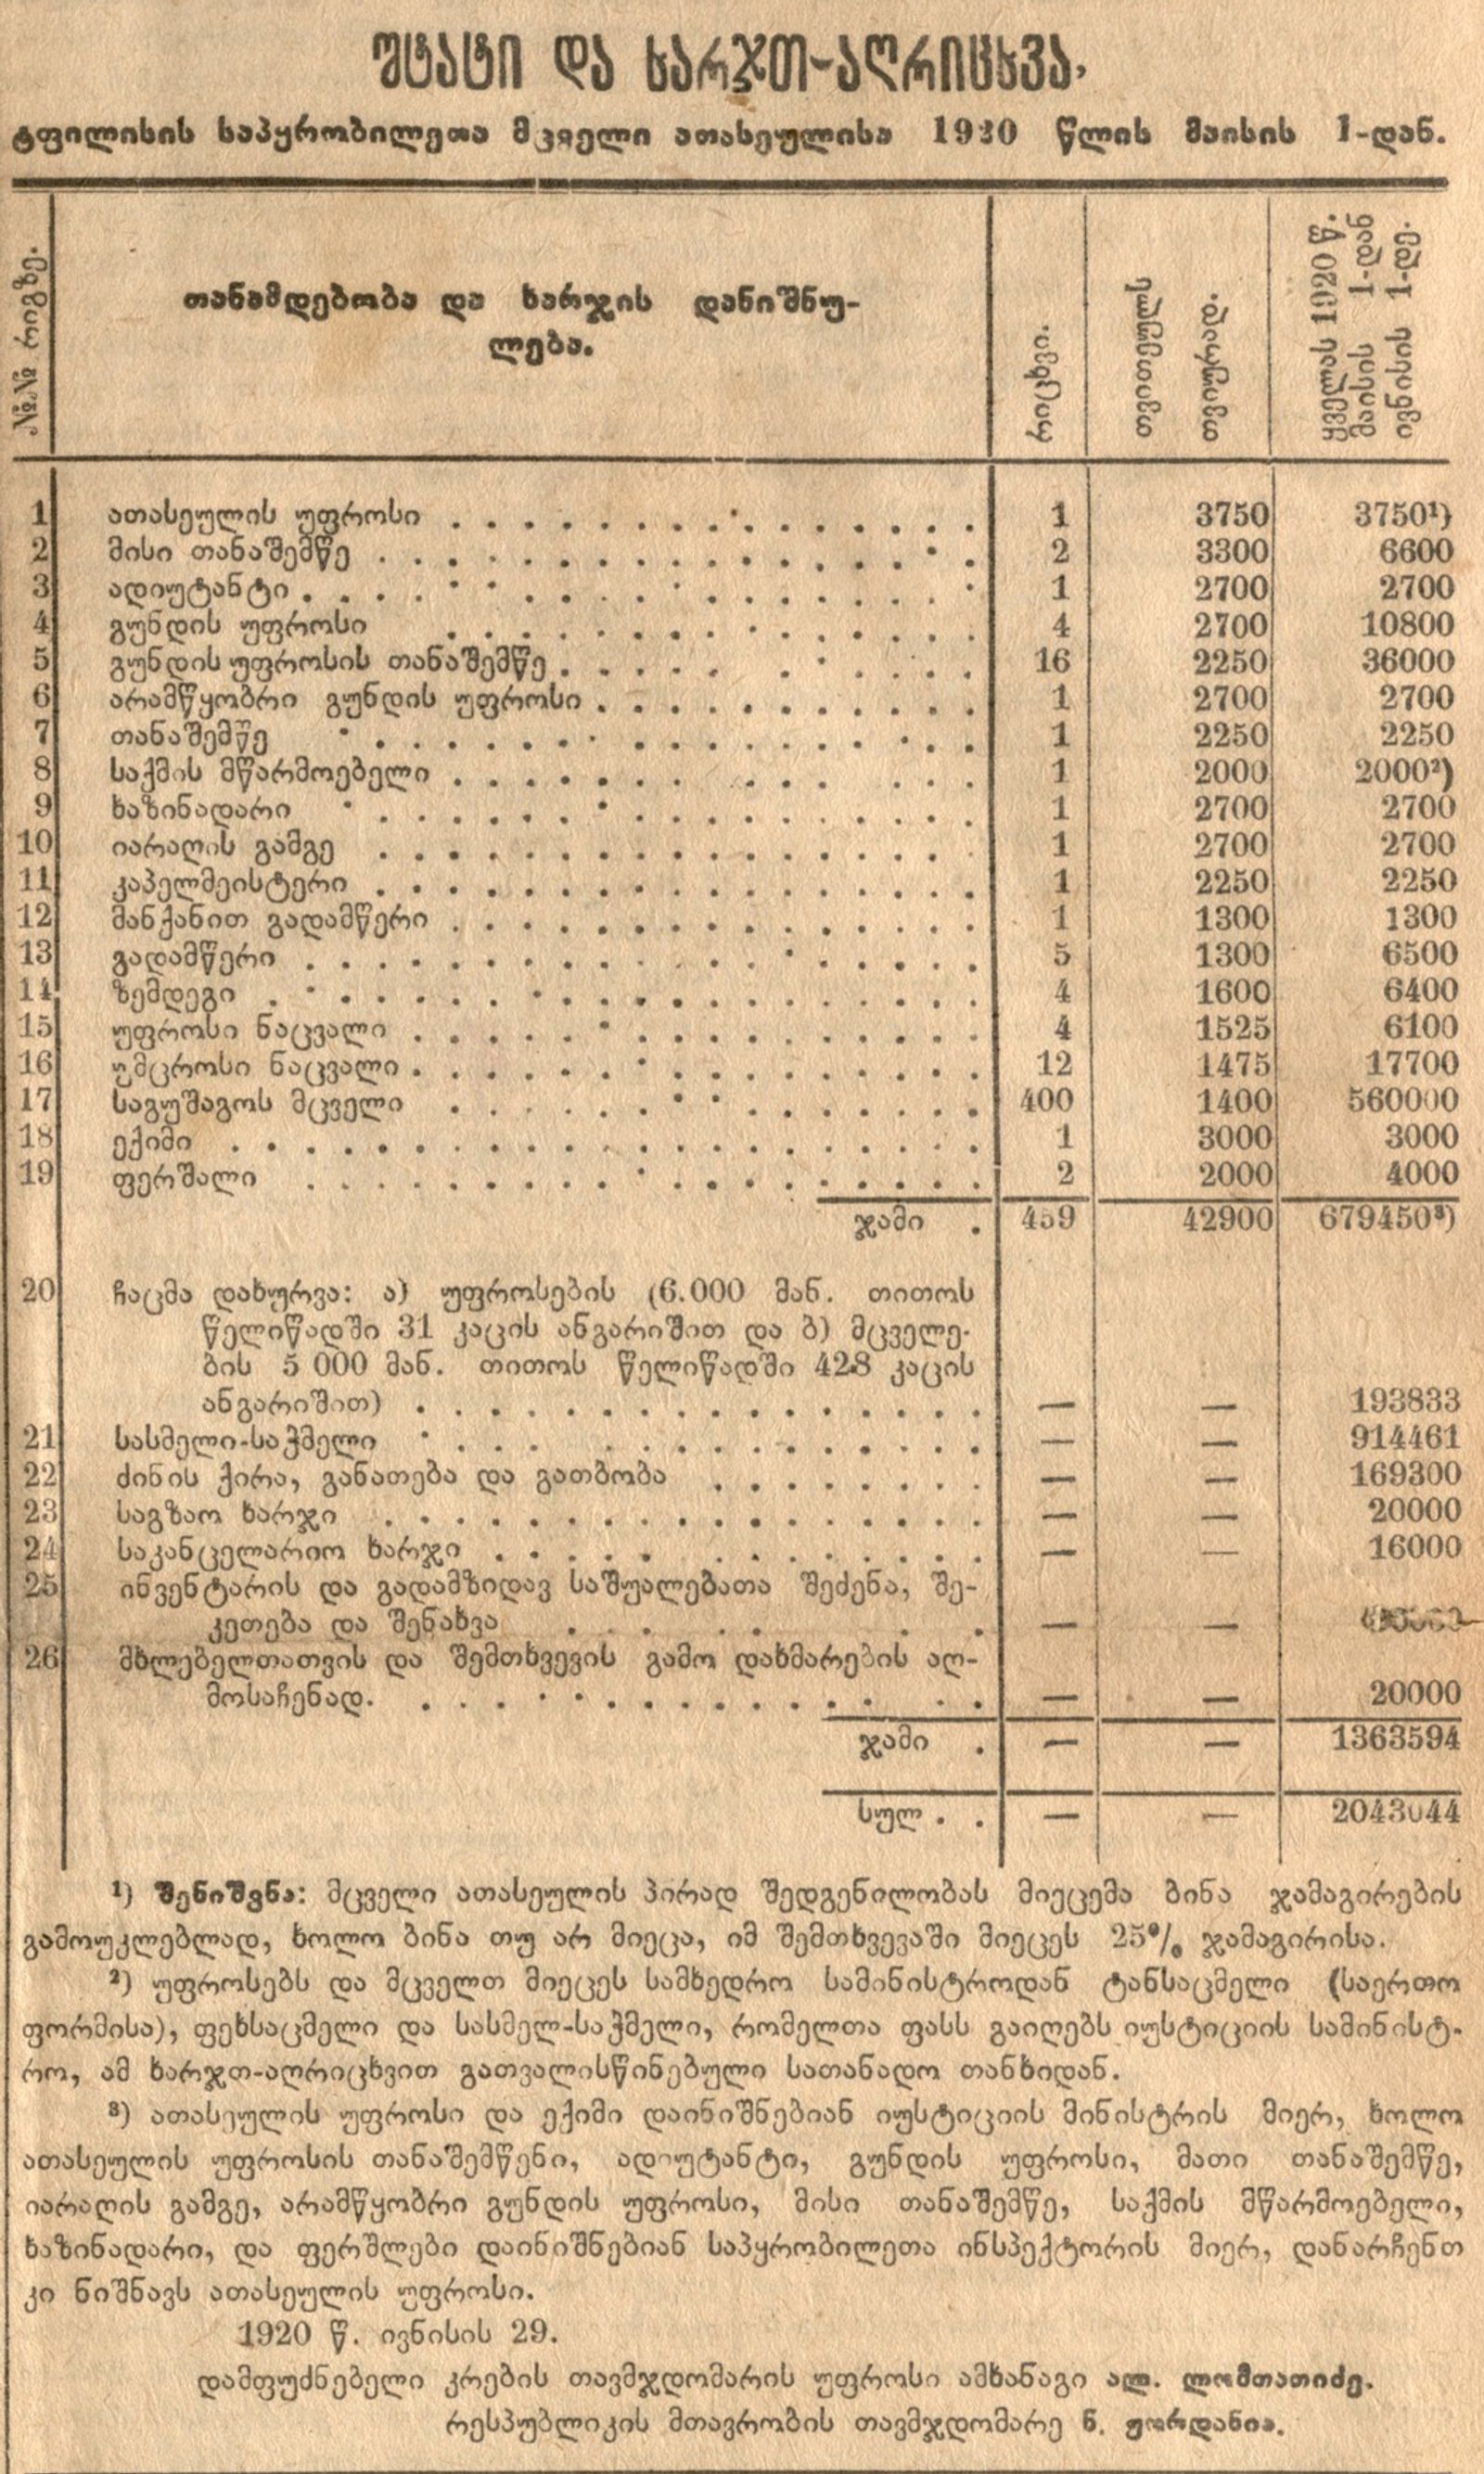 შტატი და ხარჯთ-აღრიცხვა.
ტფილისის საპყრობილეთა მცველი ათასეულისა 1920 წლის მაისის 1-დან.
№№ რიგზე.
თანამდებობა და ხარჯის დანიშნუ-
ლება.
რიცხვი.
თვითეულზე
თვიური
ყველას 1920 წ.
მაისის 1-დან
ივნისის 1-დე.
1 ათასეულის უფროსი 1 3750 3750¹)
2 მისი თანაშემწე 2 3300 6600
3 ადიუტანტი 1 2700 2700
4 გუნდის უფროსი 4 2700 10800
5 გუნდის უფროსის თანაშემწე 16 2250 36000
6 არამწყობრი გუნდის უფროსი 1 2700 2700
7 თანაშემწე 1 2250 2250
8 საქმის მწარმოებელი 1 2000 2000²)
9 ხაზინადარი 1 2700 2700
10 იარაღის გამგე 1 2700 2700
11 კაპელმეისტერი 1 2250 2250
12 მანქანით გადამწერი 1 1300 1300
13 გადამწერი 5 1300 6500
14 ზემდეგი 4 1600 6400
15 უფროსი ნაცვალი 4 1525 6100
16 უმცროსი ნაცვალი 12 1475 17700
17 საგუშაგოს მცველი 400 1400 560000
18 ექიმი 1 3000 3000
19 ფერშალი 2 2000 4000
ჯამი . 459 42900 679450³)
20 ჩაცმა დახურვა: ა) უფროსების (6.000 მან. თითოს
წელიწადში 31 კაცის ანგარიშით და ბ) მცველე-
ბის 5 000 მან. თითოს წელიწადში 428 კაცის
ანგარიშით) — — 193833
21 სასმელი-საჭმელი — — 914461
22 ძინის ქირა, განათება და გათბობა — — 169300
23 საგზაო ხარჯი — — 20000
24 საკანცელარიო ხარჯი — — 16000
25 ინვენტარის და გადამზიდავ საშუალებათა შეძენა, შე-
კეთება და შენახვა — —
26 მხლებელთათვის და შემთხვევის გამო დახმარების აღ-
მოსაჩენად. — — 20000
ჯამი . — — 1363594
სულ . . — — 2043044
¹) შენიშვნა: მცველი ათასეულის პირად შედგენილობას მიეცემა ბინა ჯამაგირების
გამოუკლებლად, ხოლო ბინა თუ არ მიეცა, იმ შემთხვევაში მიეცეს 25% ჯამაგირისა.
²) უფროსებს და მცველთ მიეცეს სამხედრო სამინისტროდან ტანსაცმელი (საერთო
ფორმისა), ფეხსაცმელი და სასმელ-საჭმელი, რომელთა ფასს გაიღებს იუსტიციის სამინისტ-
რო, ამ ხარჯთ-აღრიცხვით გათვალისწინებული სათანადო თანხიდან.
³) ათასეულის უფროსი და ექიმი დაინიშნებიან იუსტიციის მინისტრის მიერ, ხოლო
ათასეულის უფროსის თანაშემწენი, ადიუტანტი, გუნდის უფროსი, მათი თანაშემწე,
იარაღის გამგე, არამწყობრი გუნდის უფროსი, მისი თანაშემწე, საქმის მწარმოებელი,
ხაზინადარი, და ფერშლები დაინიშნებიან საპყრობილეთა ინსპექტორის მიერ, დანარჩენთ
კი ნიშნავს ათასეულის უფროსი.
1920 წ. ივნისის 29.
დამფუძნებელი კრების თავმჯდომარის უფროსი ამხანაგი ალ. ლომთათიძე.
რესპუბლიკის მთავრობის თავმჯდომარე ნ. ჟორდანია.